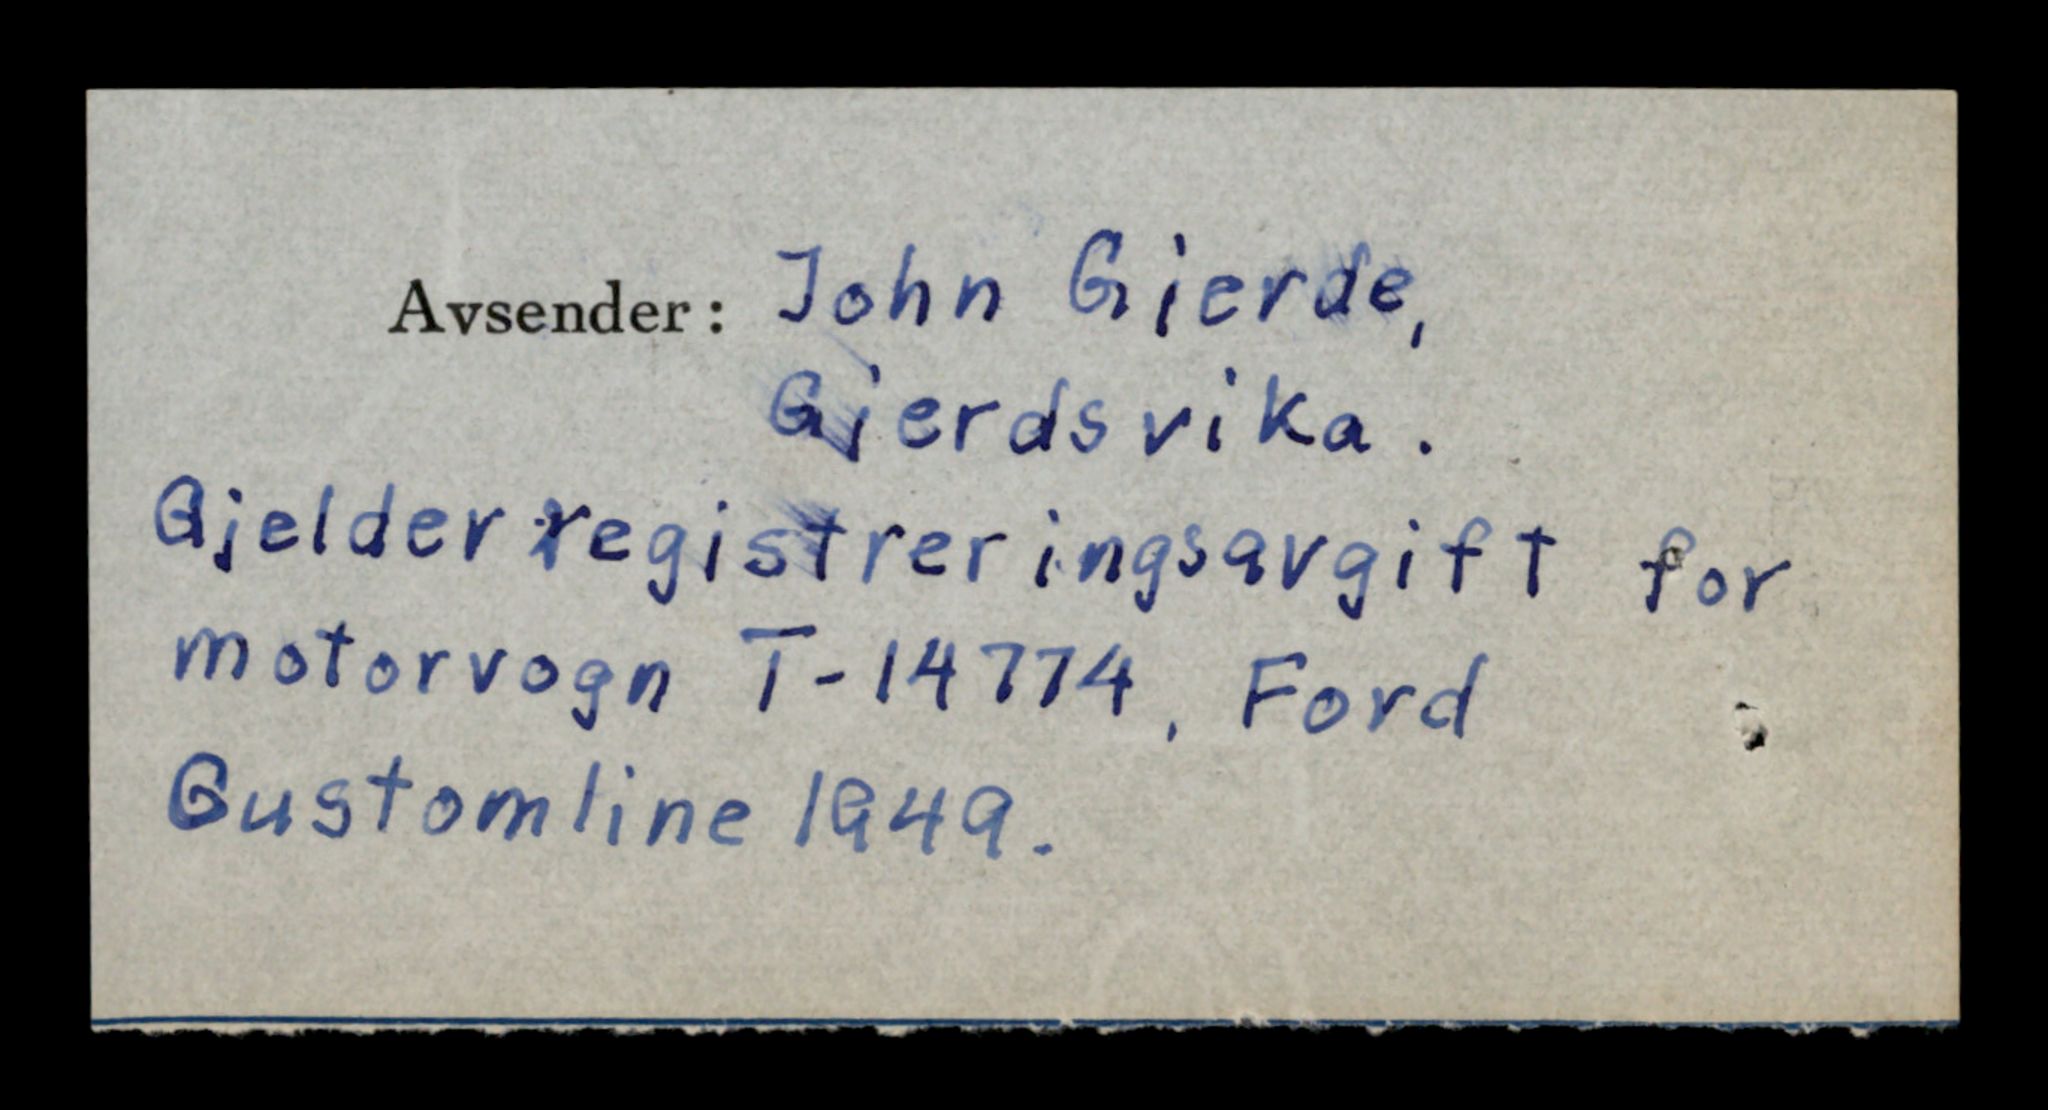 Avsender: John Gjerde,
Gjerdsvika.
Gjelder registreringsavgift for
motorvogn T-14774, Ford
Gustomline 1949.